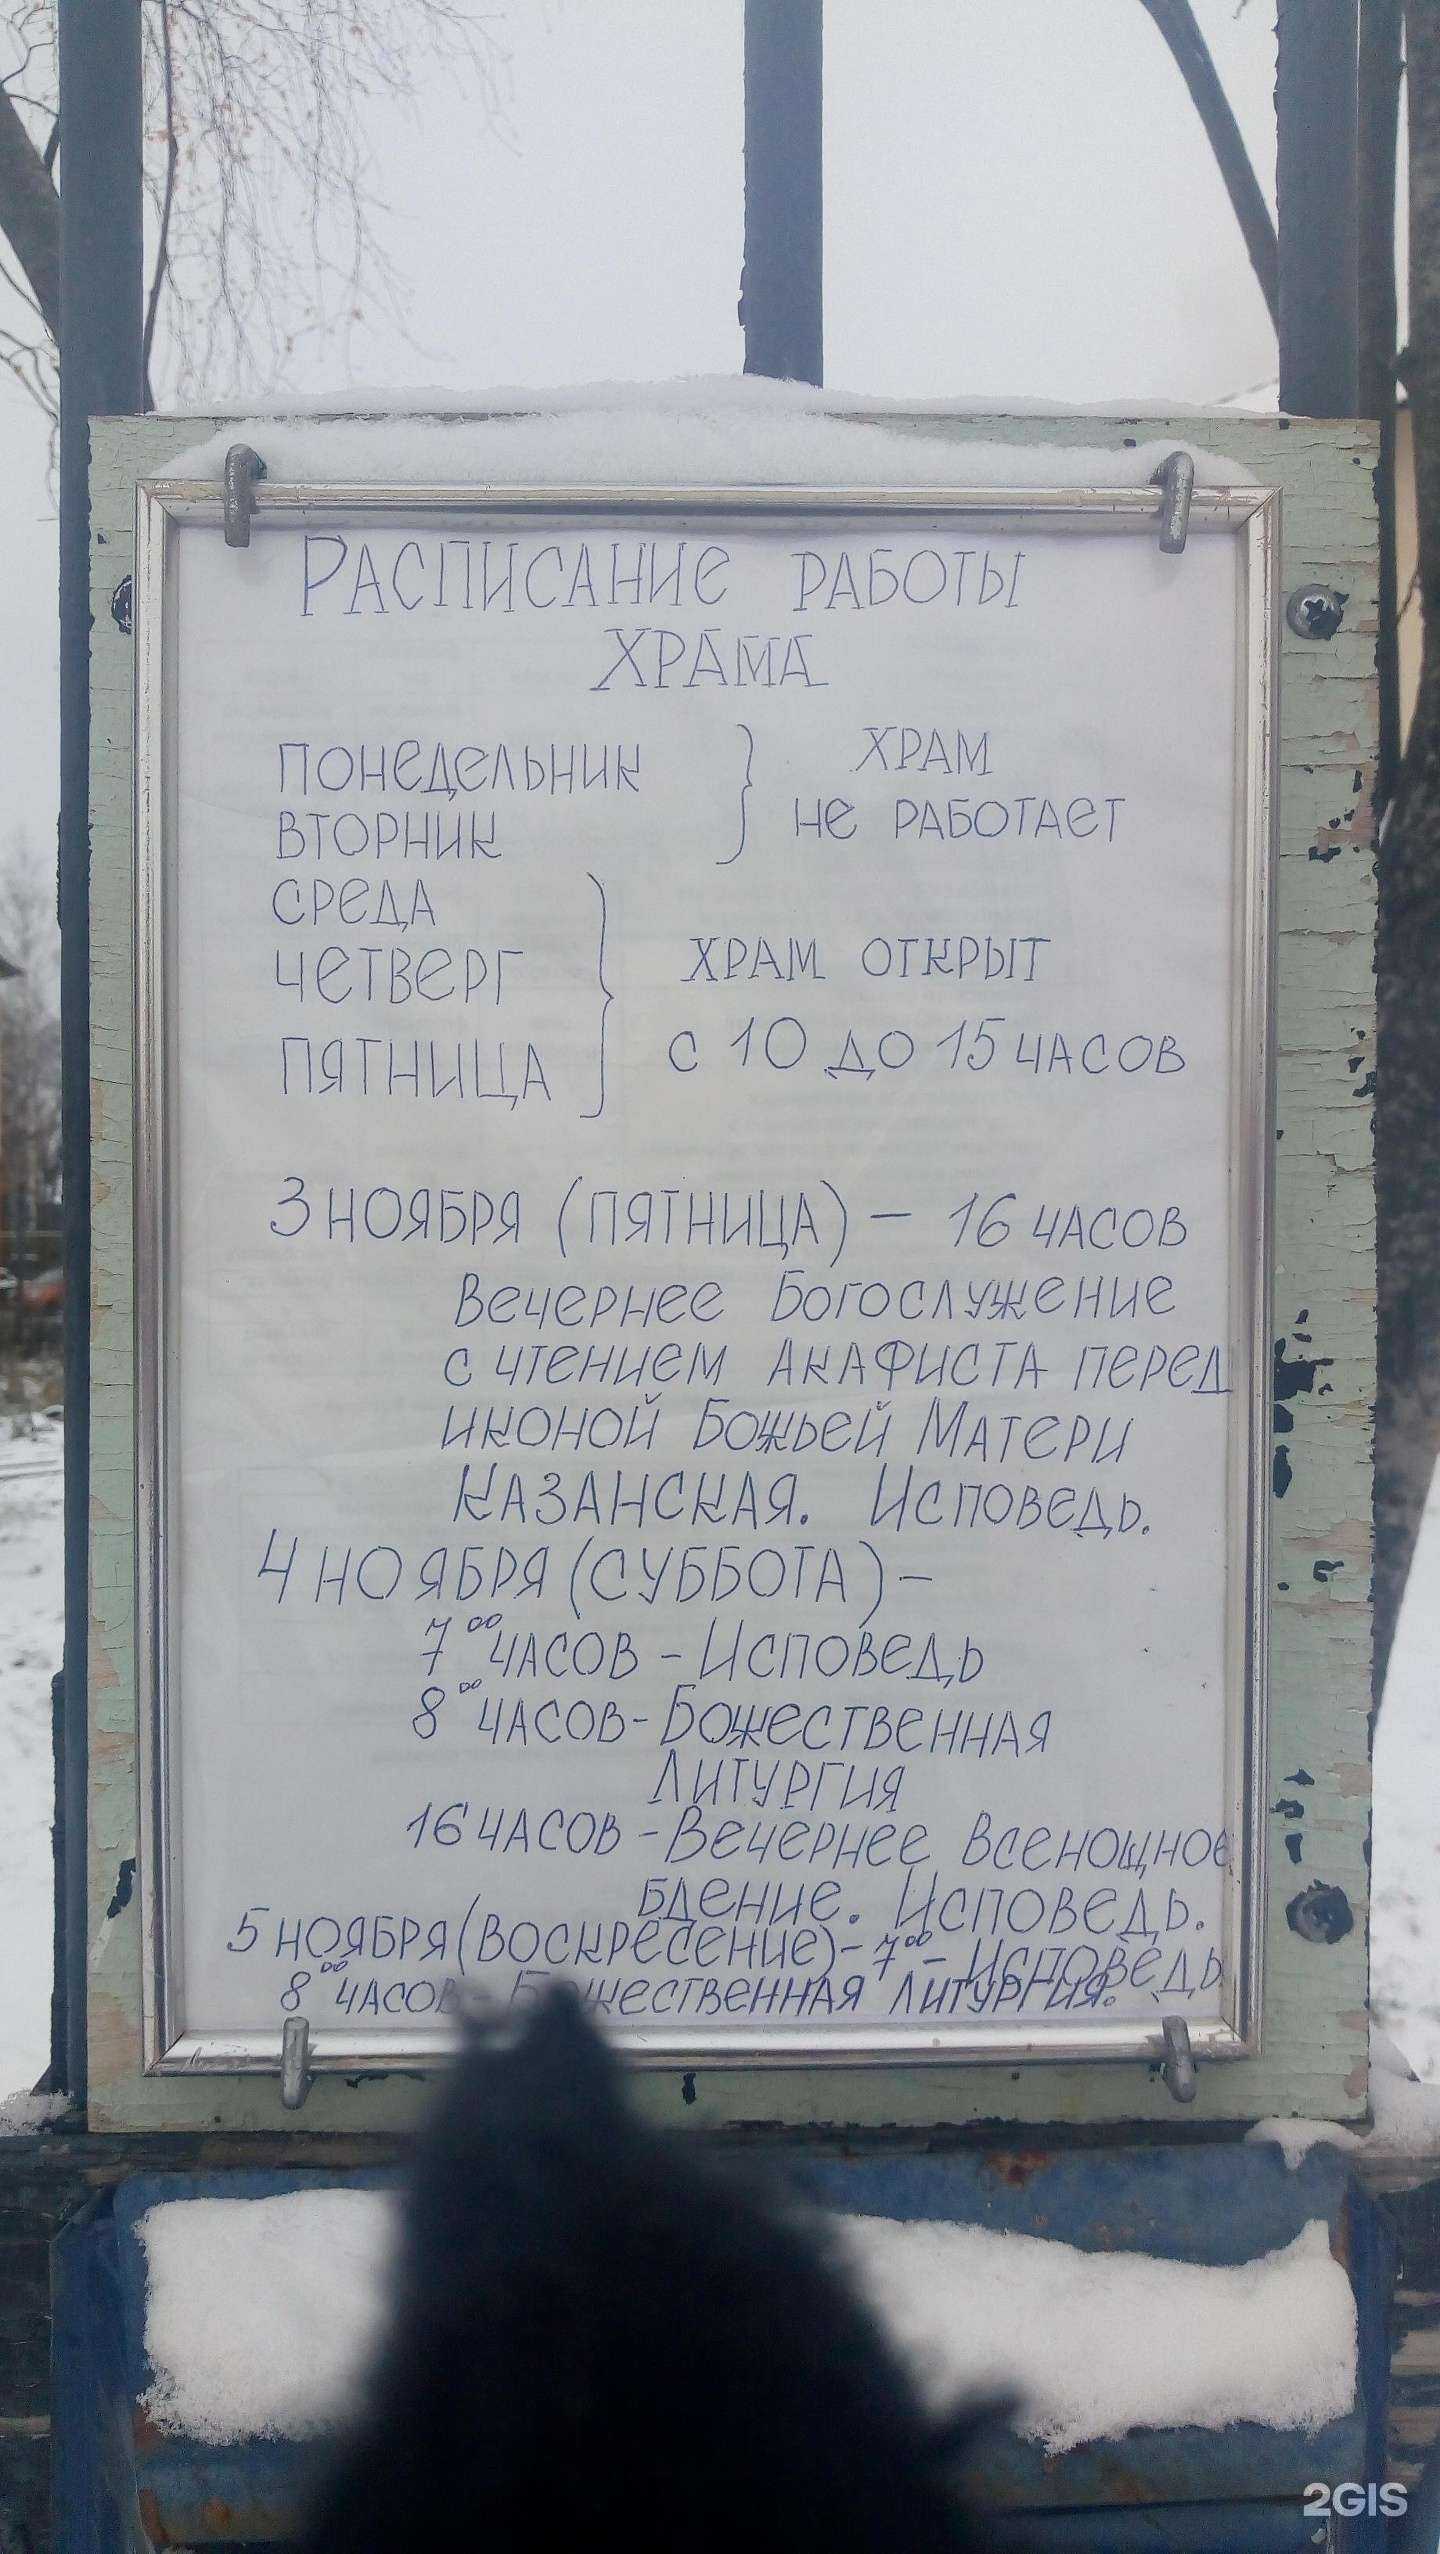 РАСПИСАНИЕ РАБОТЫ
ХРАМА
ПОНЕДЕЛЬНИК
ВТОРНИК
ХРАМ
НЕ РАБОТАЕТ
СРЕДА
ЧЕТВЕРГ
ПЯТНИЦА
ХРАМ ОТКРЫТ
С 10 ДО 15 ЧАСОВ
3 НОЯБРЯ (ПЯТНИЦА) – 16 ЧАСОВ
ВЕЧЕРНЕЕ БОГОСЛУЖЕНИЕ
С ЧТЕНИЕМ АКАФИСТА ПЕРЕД
ИКОНОЙ БОЖЬЕЙ МАТЕРИ
КАЗАНСКАЯ. ИСПОВЕДЬ.
4 НОЯБРЯ (СУББОТА) –
7 00 ЧАСОВ – ИСПОВЕДЬ
8 00 ЧАСОВ – БОЖЕСТВЕННАЯ
ЛИТУРГИЯ
16 ЧАСОВ – ВЕЧЕРНЕЕ ВСЕНОЩНОЕ
БДЕНИЕ. ИСПОВЕДЬ.
5 НОЯБРЯ (ВОСКРЕСЕНИЕ) – 7 00 – ИСПОВЕДЬ
8 00 ЧАСОВ – БОЖЕСТВЕННАЯ ЛИТУРГИЯ.
2GIS